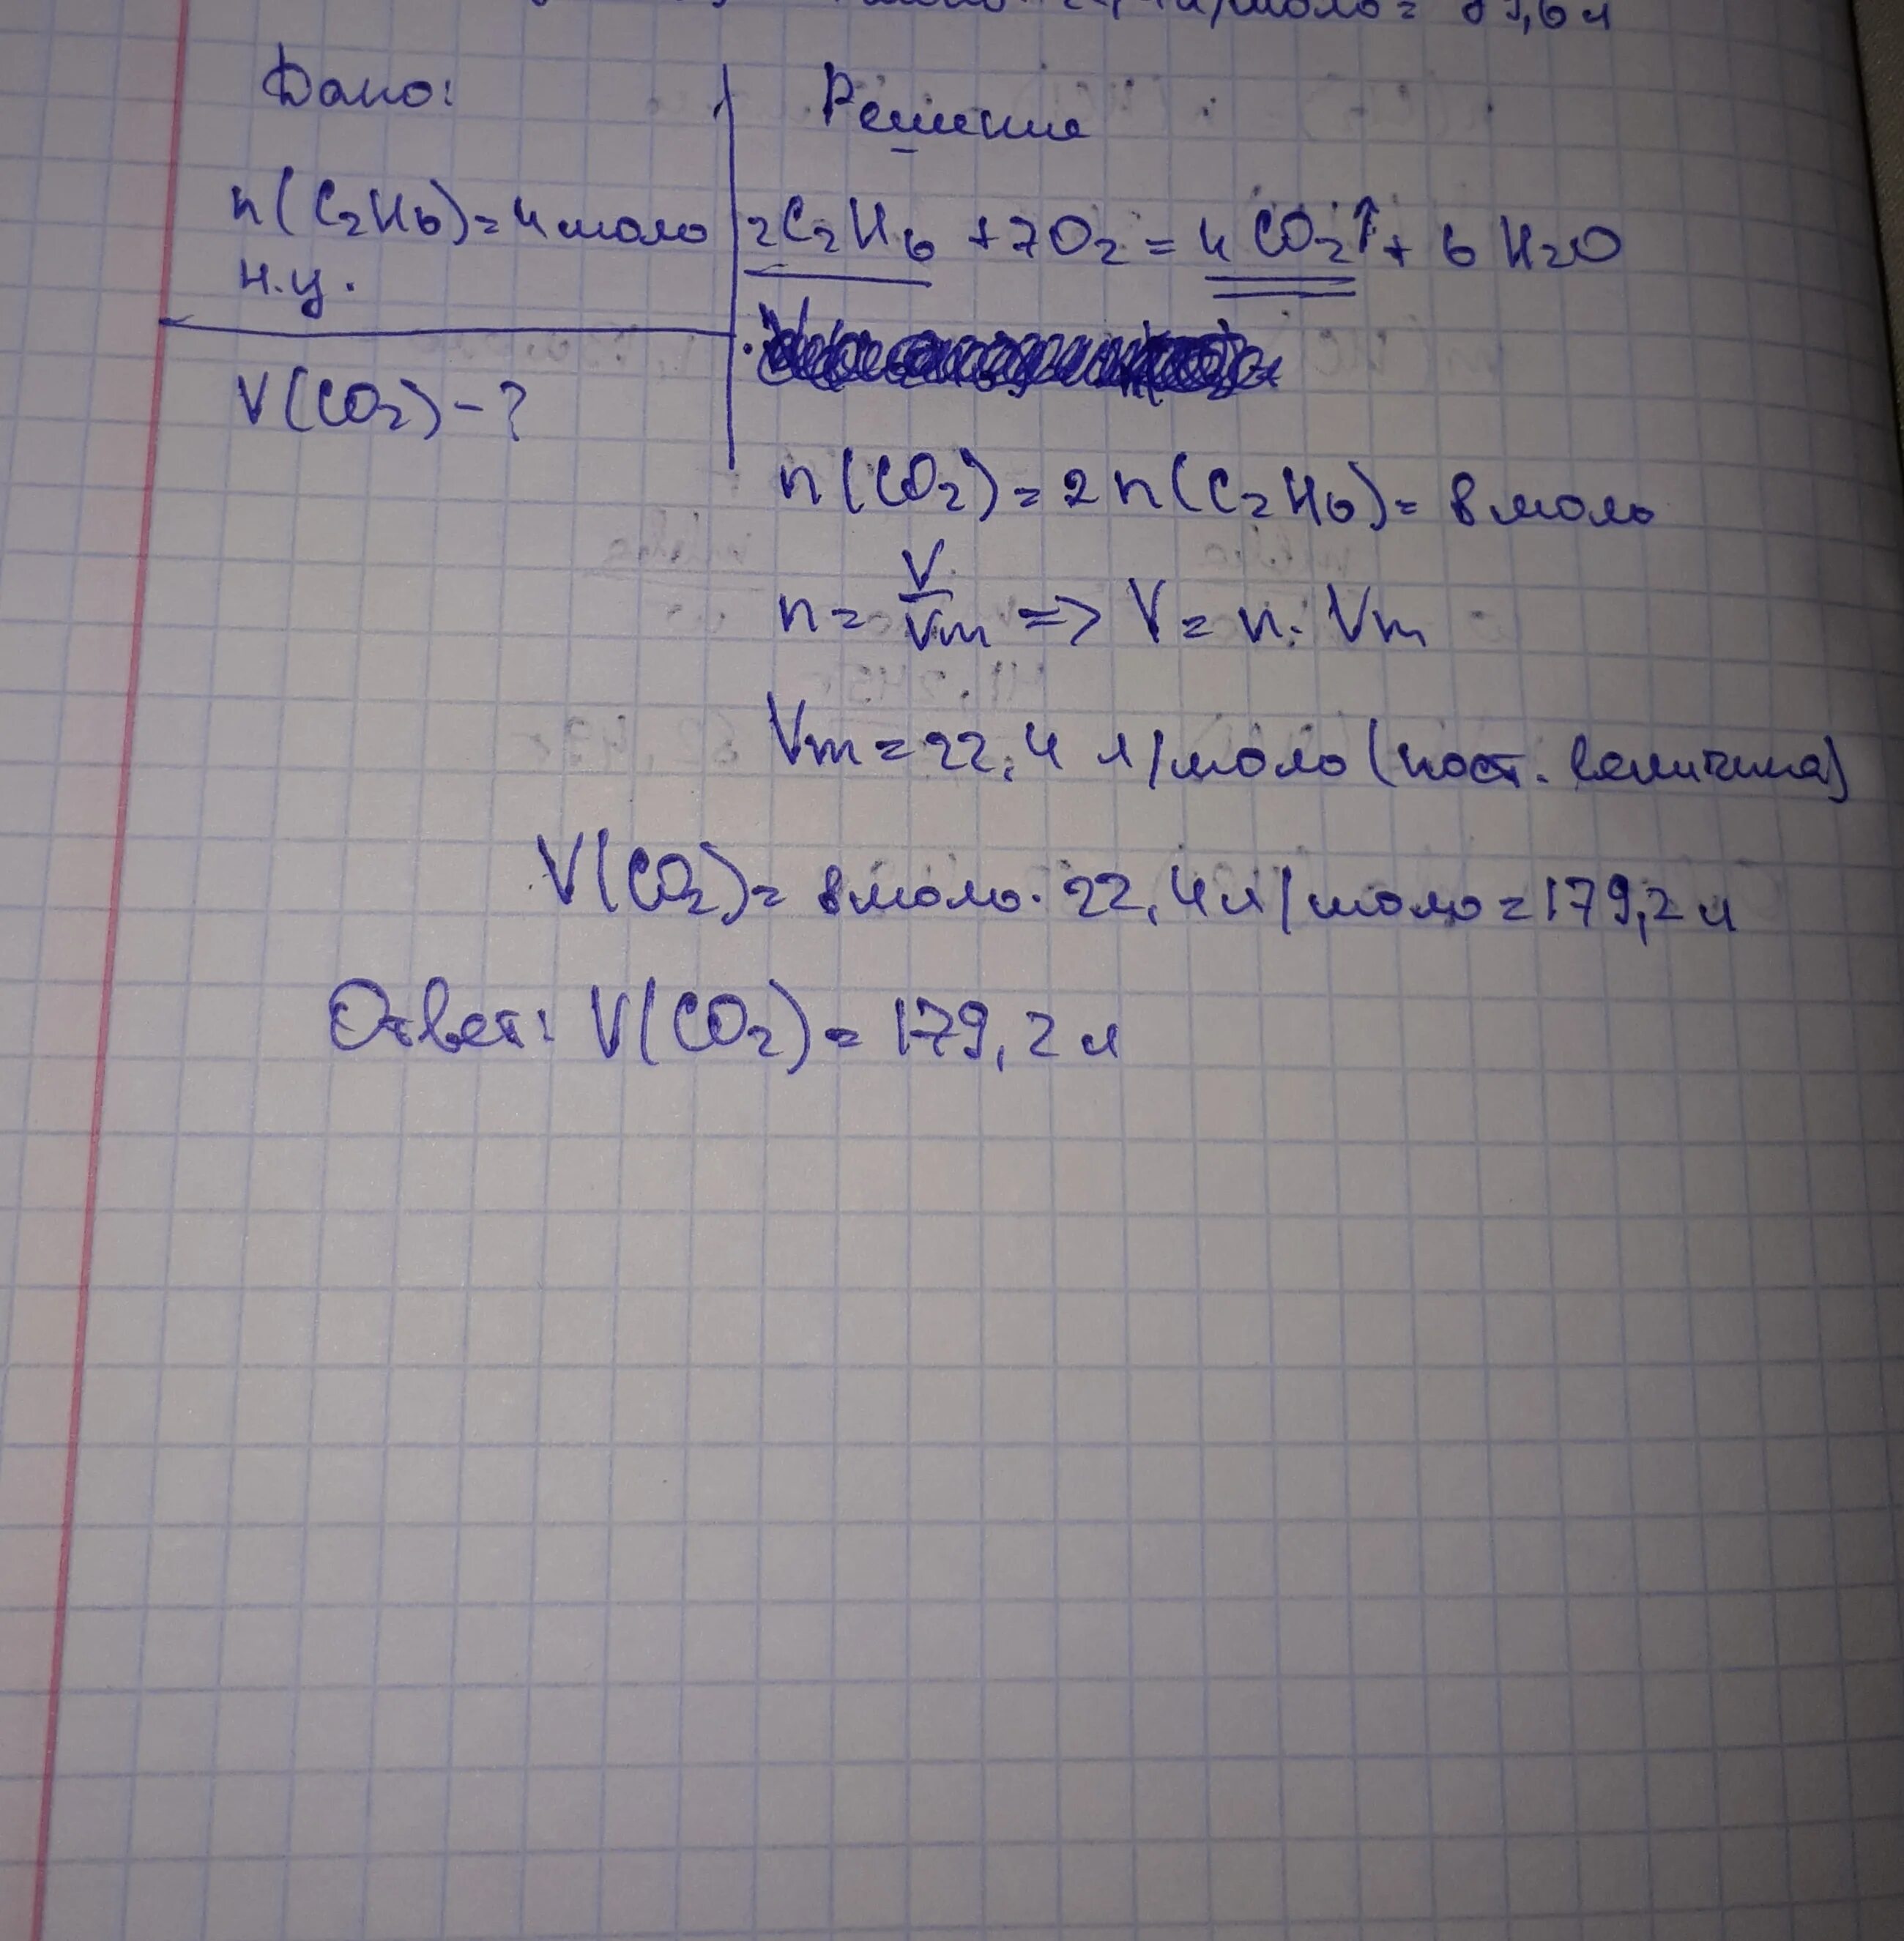 моль = 89,6 л
Дано:
Решение
n(C₂H₆)=4 моль
н.у.
2C₂H₆ + 7O₂ = 4CO₂↑ + 6H₂O
V(CO₂) - ?
n(CO₂) = 2n(C₂H₆) = 8 моль
n = V/Vm => V = n · Vm
Vm = 22,4 л/моль (пост. величина)
V(CO₂) = 8 моль · 22,4 л/моль = 179,2 л
Ответ: V(CO₂) = 179,2 л